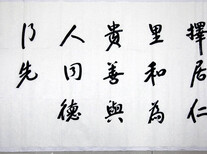 擇居仁
里和為
貴善與
人同德
乃先